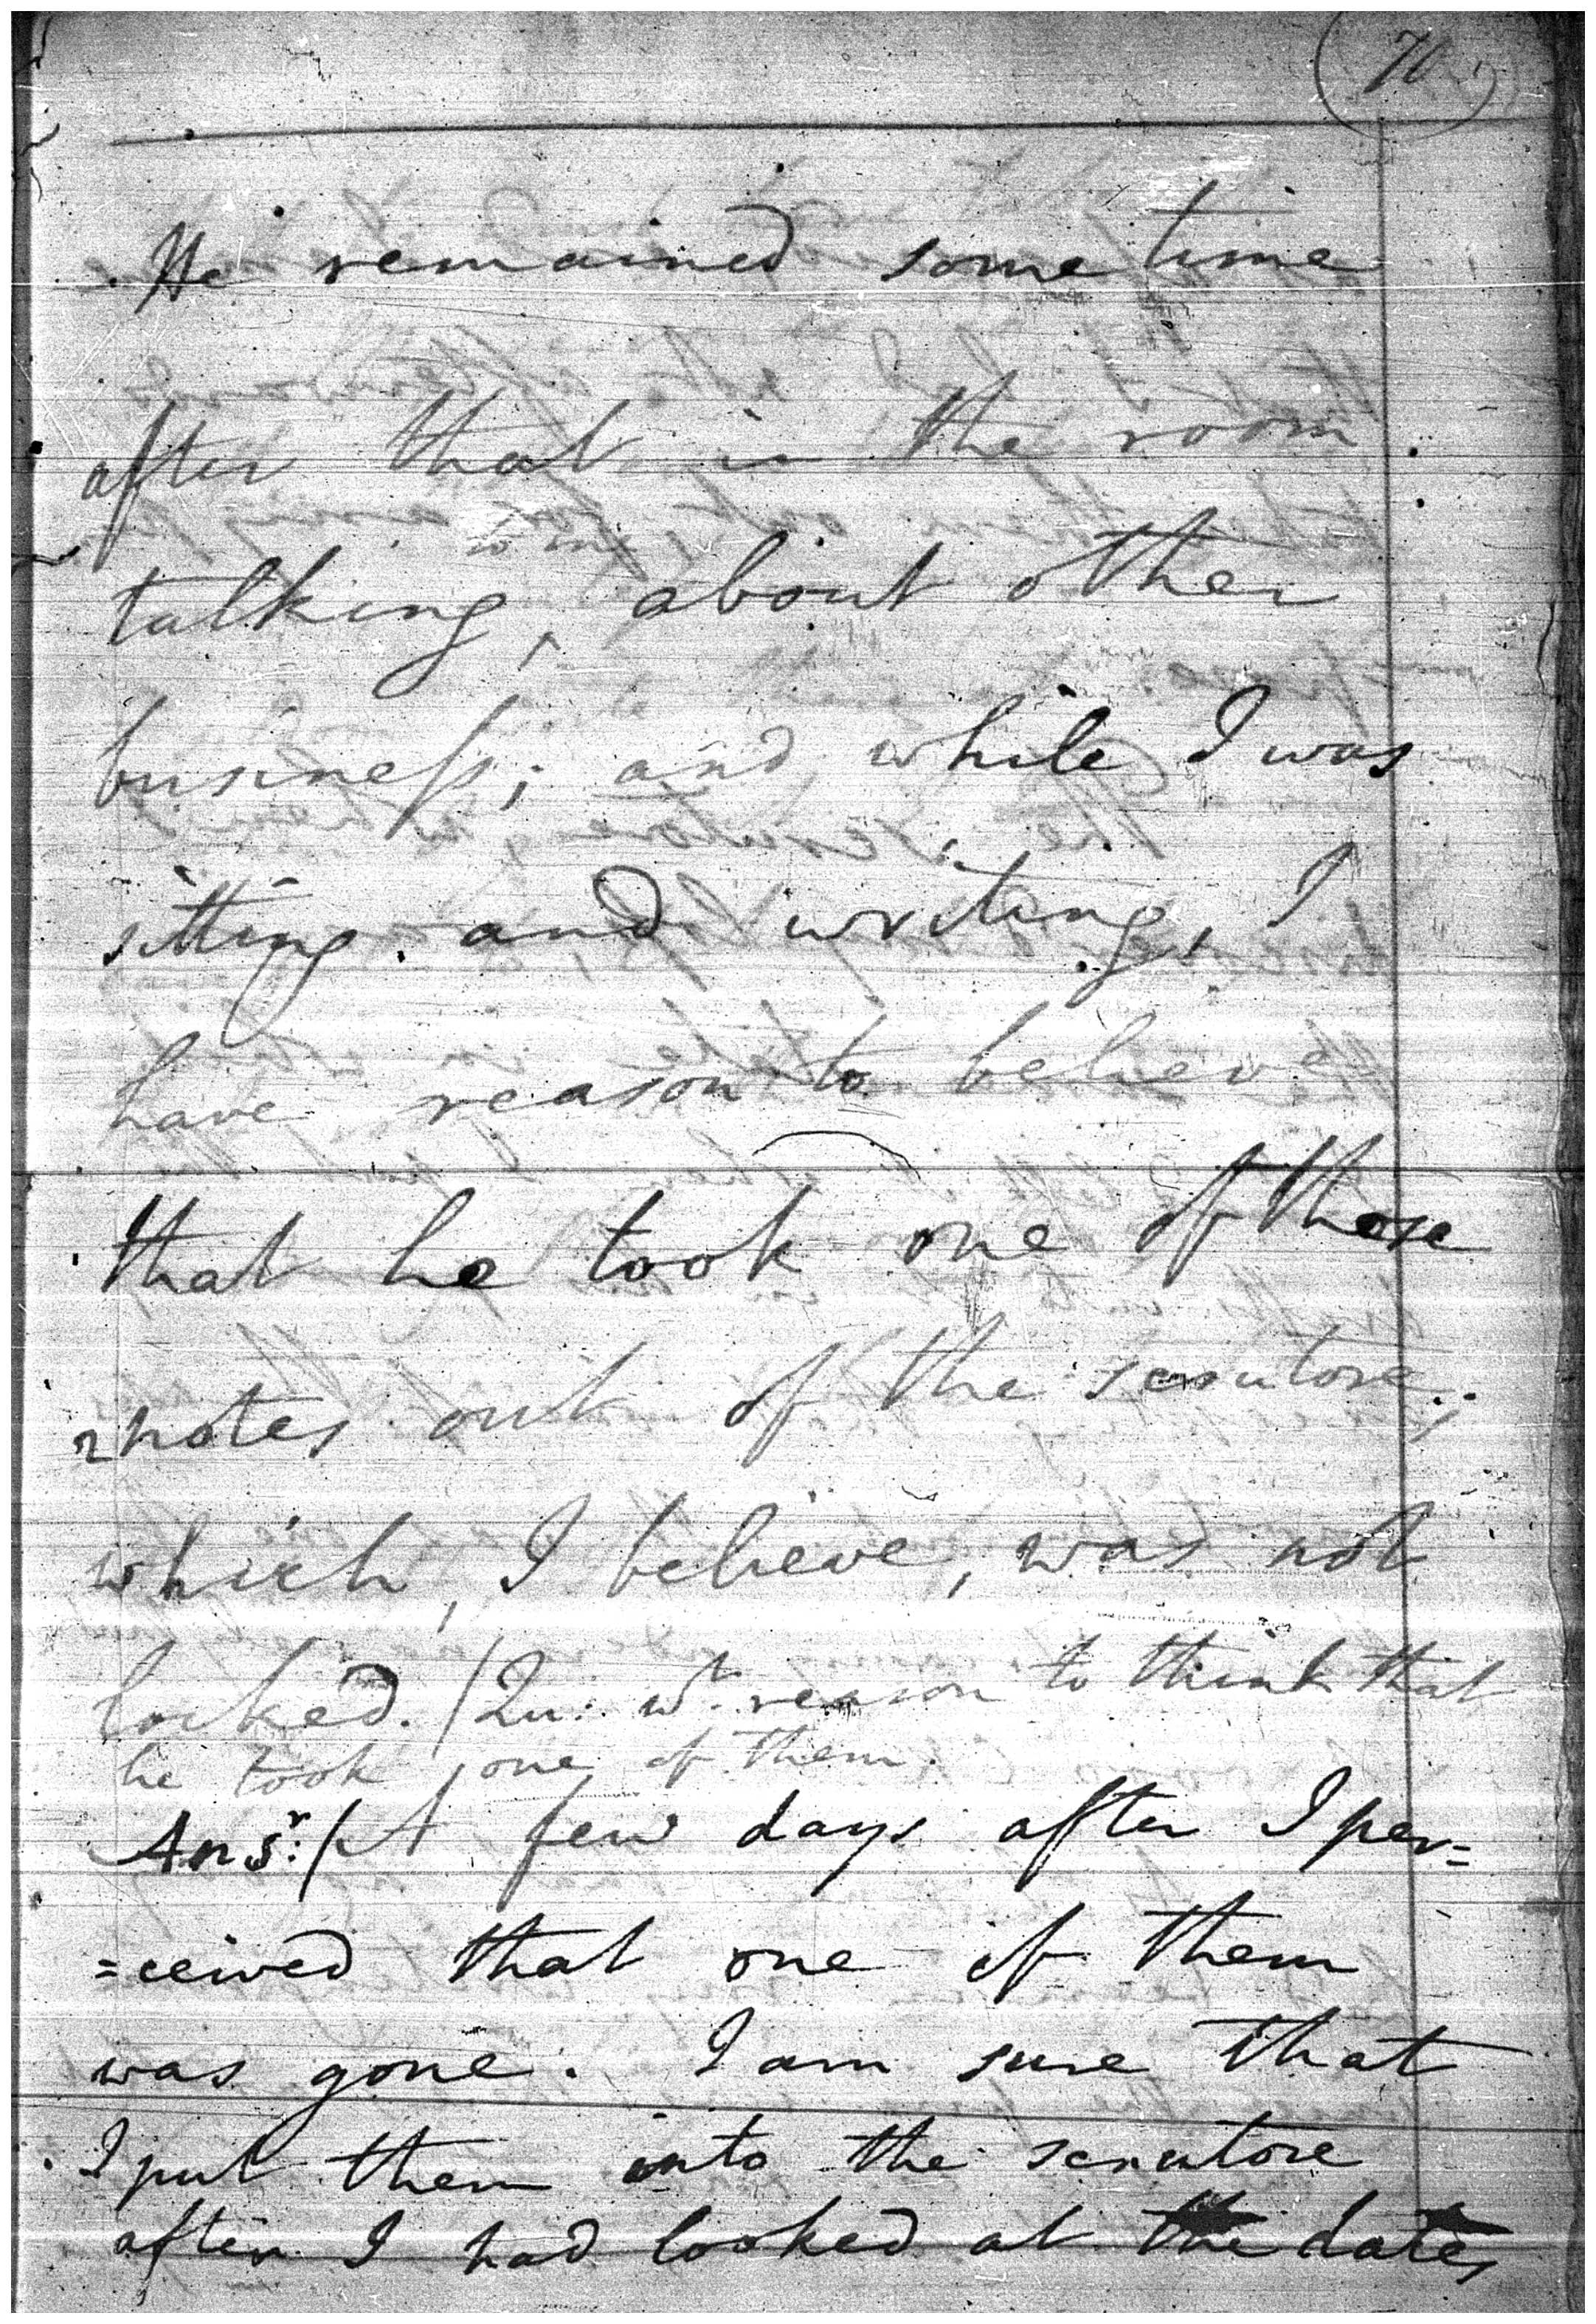 70
He remained some time
after that in the room
w^th me
talking ^ about other
business; and while I was
sitting and writing, I
have reason to believe
that he took one of these
notes out of the scrutore,
which, I believe, was not
locked. / Qu: w^t reason to think that
he took one of them.
Ans^r: / A few days after I per=
=ceived that one of them
was gone. I am sure that
I put them into the scrutore
after I had looked at the dates